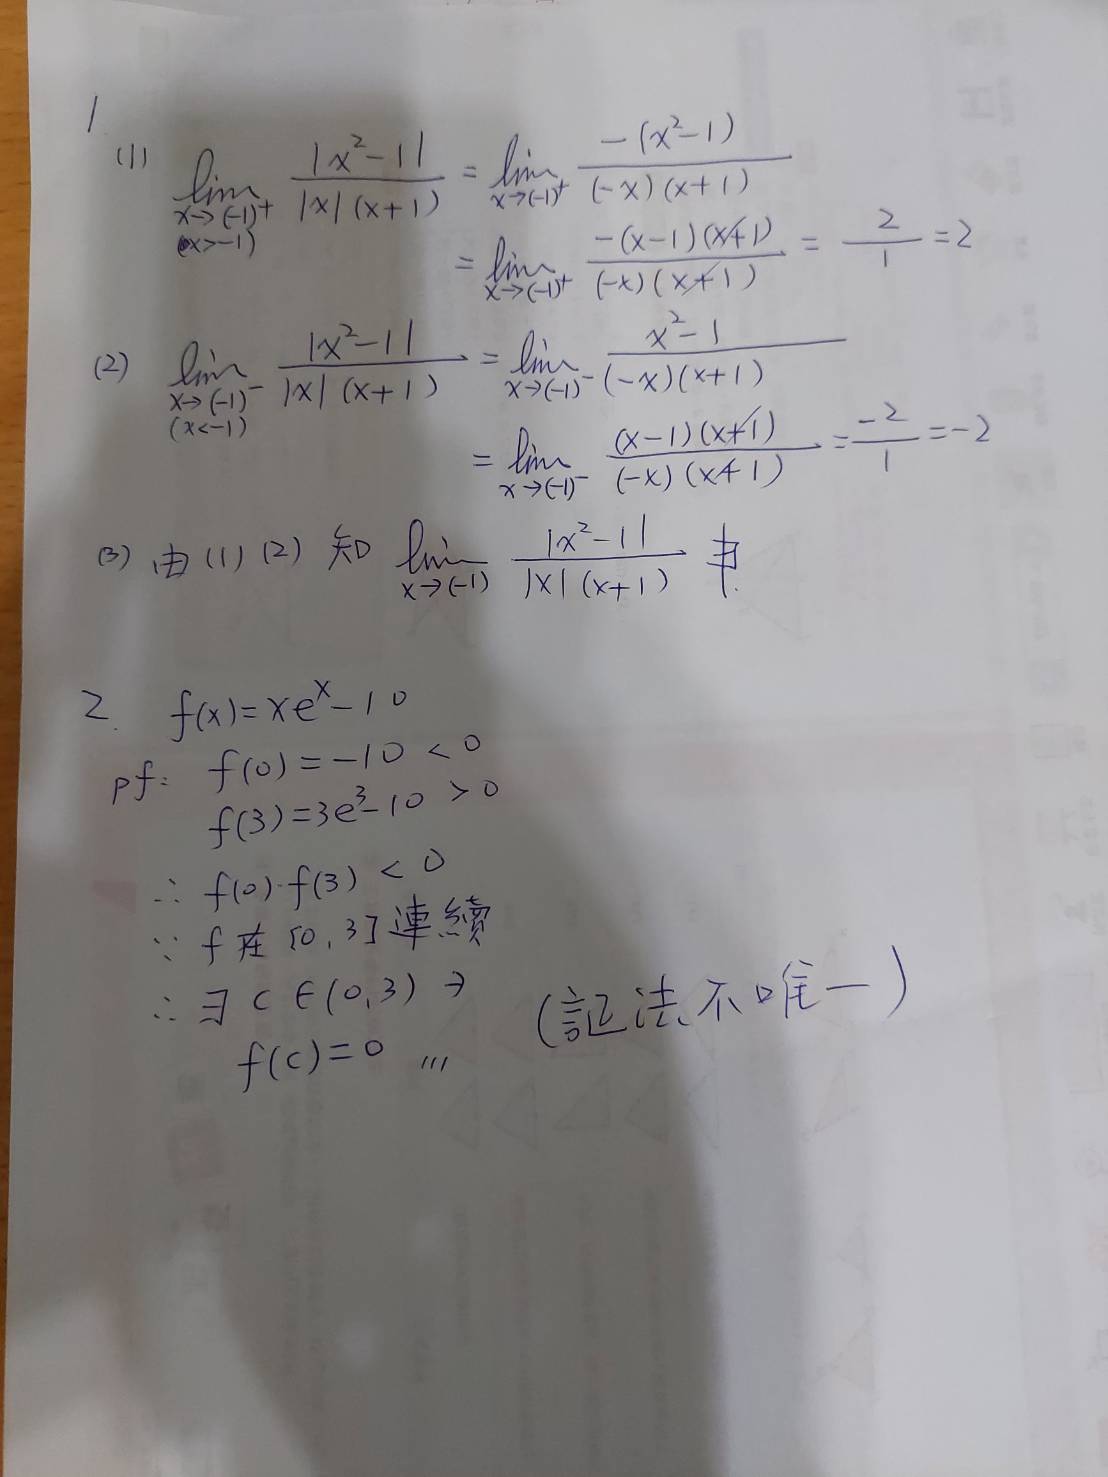 1
(1) lim x→(-1)⁺ (x>-1) |x²-1| / |x|(x+1) = lim x→(-1)⁺ -(x²-1) / (-x)(x+1)
= lim x→(-1)⁺ -(x-1)(x+1) / (-x)(x+1) = 2/1 = 2
(2) lim x→(-1)⁻ (x<-1) |x²-1| / |x|(x+1) = lim x→(-1)⁻ x²-1 / (-x)(x+1)
= lim x→(-1)⁻ (x-1)(x+1) / (-x)(x+1) = -2/1 = -2
(3) 由(1)(2)知 lim x→(-1) |x²-1| / |x|(x+1) ∄.
2. f(x)=xeˣ-10
pf: f(0)=-10<0
f(3)=3e³-10>0
∴ f(0)·f(3)<0
∵ f在[0,3]連續
∴ ∃ c∈(0,3) ∋
f(c)=0 ,,,
(証法不唯一)